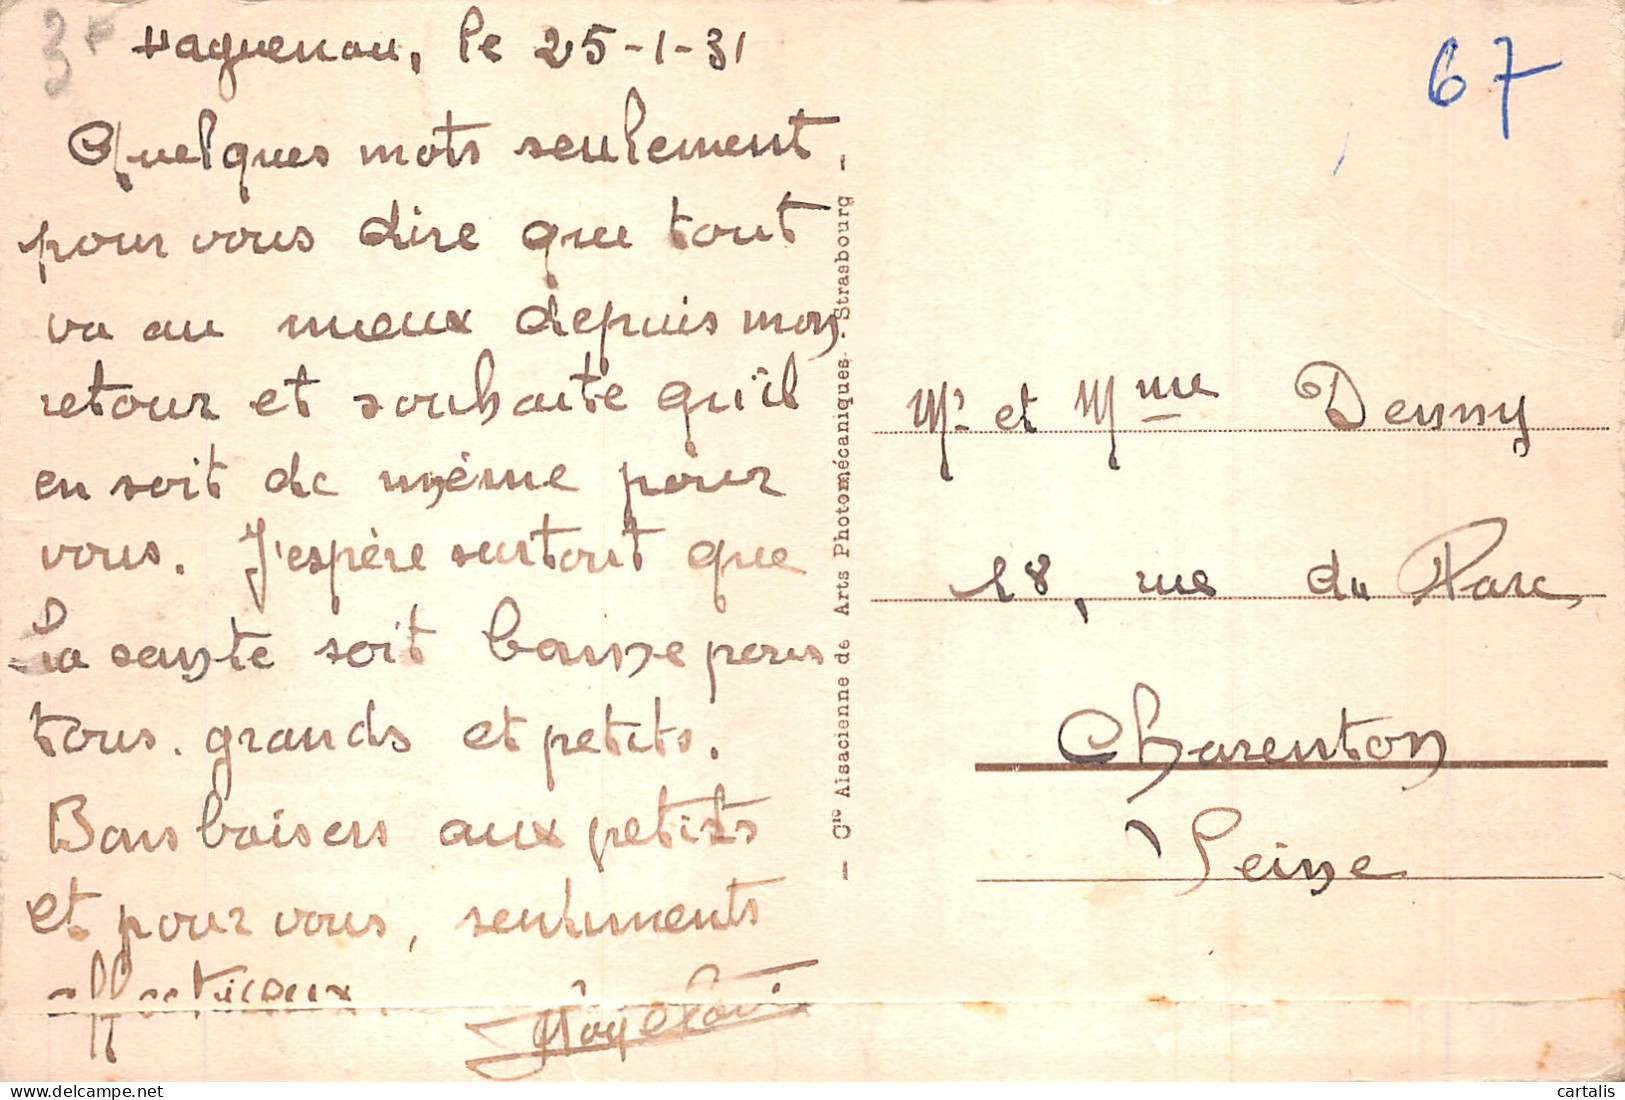 3F
Haguenau, le 25-1-31
67
Quelques mots seulement
pour vous dire que tout
va au mieux depuis mon
retour et souhaite qu'il
en soit de même pour
vous. J'espère surtout que
la sante soit bonne pour
tous. grands et petits.
Bons baisers aux petits
et pour vous, sentiments
affectueux.
- Cie Alsacienne de Arts Photomécaniques - Strasbourg -
Mr et Mme Denny
18, rue du Parc
Charenton
Seine
cartalis